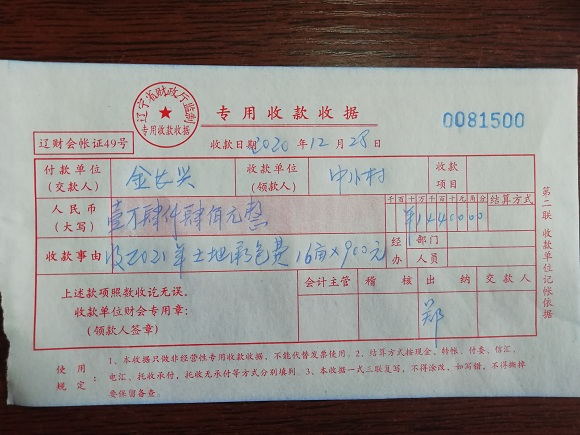 辽宁省财政厅监制
专用收款收据
专用收款收据
0081500
辽财会帐证49号
收款日期2020年12月28日
付款单位(交款人) 金长兴 收款单位(领款人) 中小村 收款项目
人民币(大写) 壹万肆仟肆佰元整 千百十万千百十元角分 ¥1440000 结算方式
收款事由 收2021年土地承包费16亩×900元 经办 部门 人员
上述款项照数收讫无误。
收款单位财会专用章:
(领款人签章)
会计主管 稽核 出纳 交款人
郑
第二联 收款单位记帐依据
使用规定: 1、本收据只做非经营性专用收款收据,不能代替发票使用。2、结算方式按现金、转帐、付委、信汇、
电汇、托收承付,托收无承付等方式分别填列。3、本收据一式三联复写,不得涂改,如写错,不得撕掉
要保留备查。